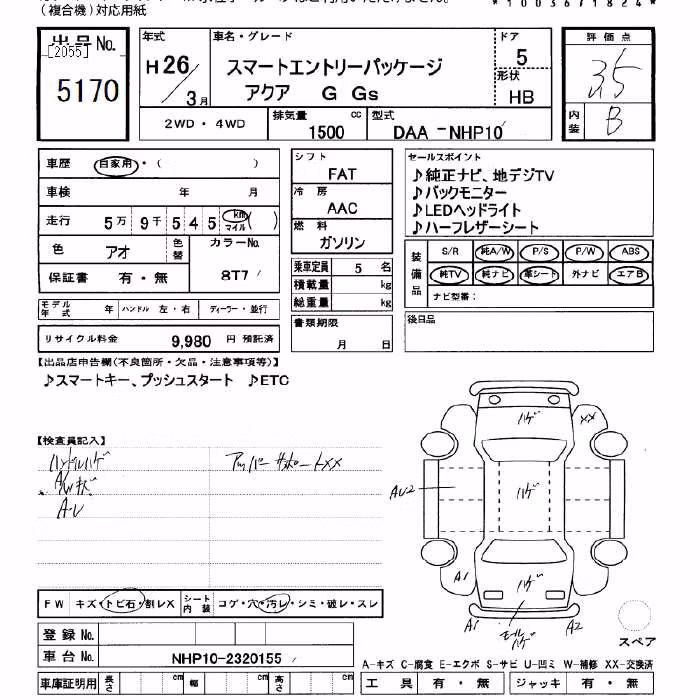 (複合機)対応用紙
*10036718 24*
出品No.
[2055]
5170
年式
H26/3月
車名・グレード
スマートエントリーパッケージ
アクア G Gs
ドア
5
形状
HB
2WD・4WD
排気量
1500 cc
型式
DAA-NHP10
評価点
3.5
内装
B
車歴 自家用・( )
車検 年 月
走行 5万 9千 5 4 5 km マイル ( )
色 アオ
色替
カラーNo.
8T7
保証書 有・無
モデル年式 年 ハンドル 左・右 ディーラー・並行
リサイクル料金 9,980 円 預託済
シフト
FAT
冷房
AAC
燃料
ガソリン
乗車定員 5 名
積載量 kg
総重量 kg
書類期限
月 日
セールスポイント
♪純正ナビ、地デジTV
♪バックモニター
♪LEDヘッドライト
♪ハーフレザーシート
装備品
S/R 純A/W P/S P/W ABS
純TV 純ナビ 革シート 外ナビ エアB
ナビ型番:
後日品
【出品店申告欄(不良箇所・欠品・注意事項等)】
♪スマートキー、プッシュスタート ♪ETC
【検査員記入】
ハンドルハゲ
A/Wキズ
A・U
アッパーサポートXX
ハゲ
XX
AU2
ハゲ
A1
ハゲ
A1
モールハゲ
A2
スペア
FW キズ・トビ石・割レX
シート内装 コゲ・穴・汚レ・シミ・破レ・スレ
登録No.
車台No. NHP10-2320155
車庫証明用 長さ cm 幅 cm 高さ cm
A-キズ C-腐食 E-エクボ S-サビ U-凹ミ W-補修 XX-交換済
工具 有・無 ジャッキ 有・無